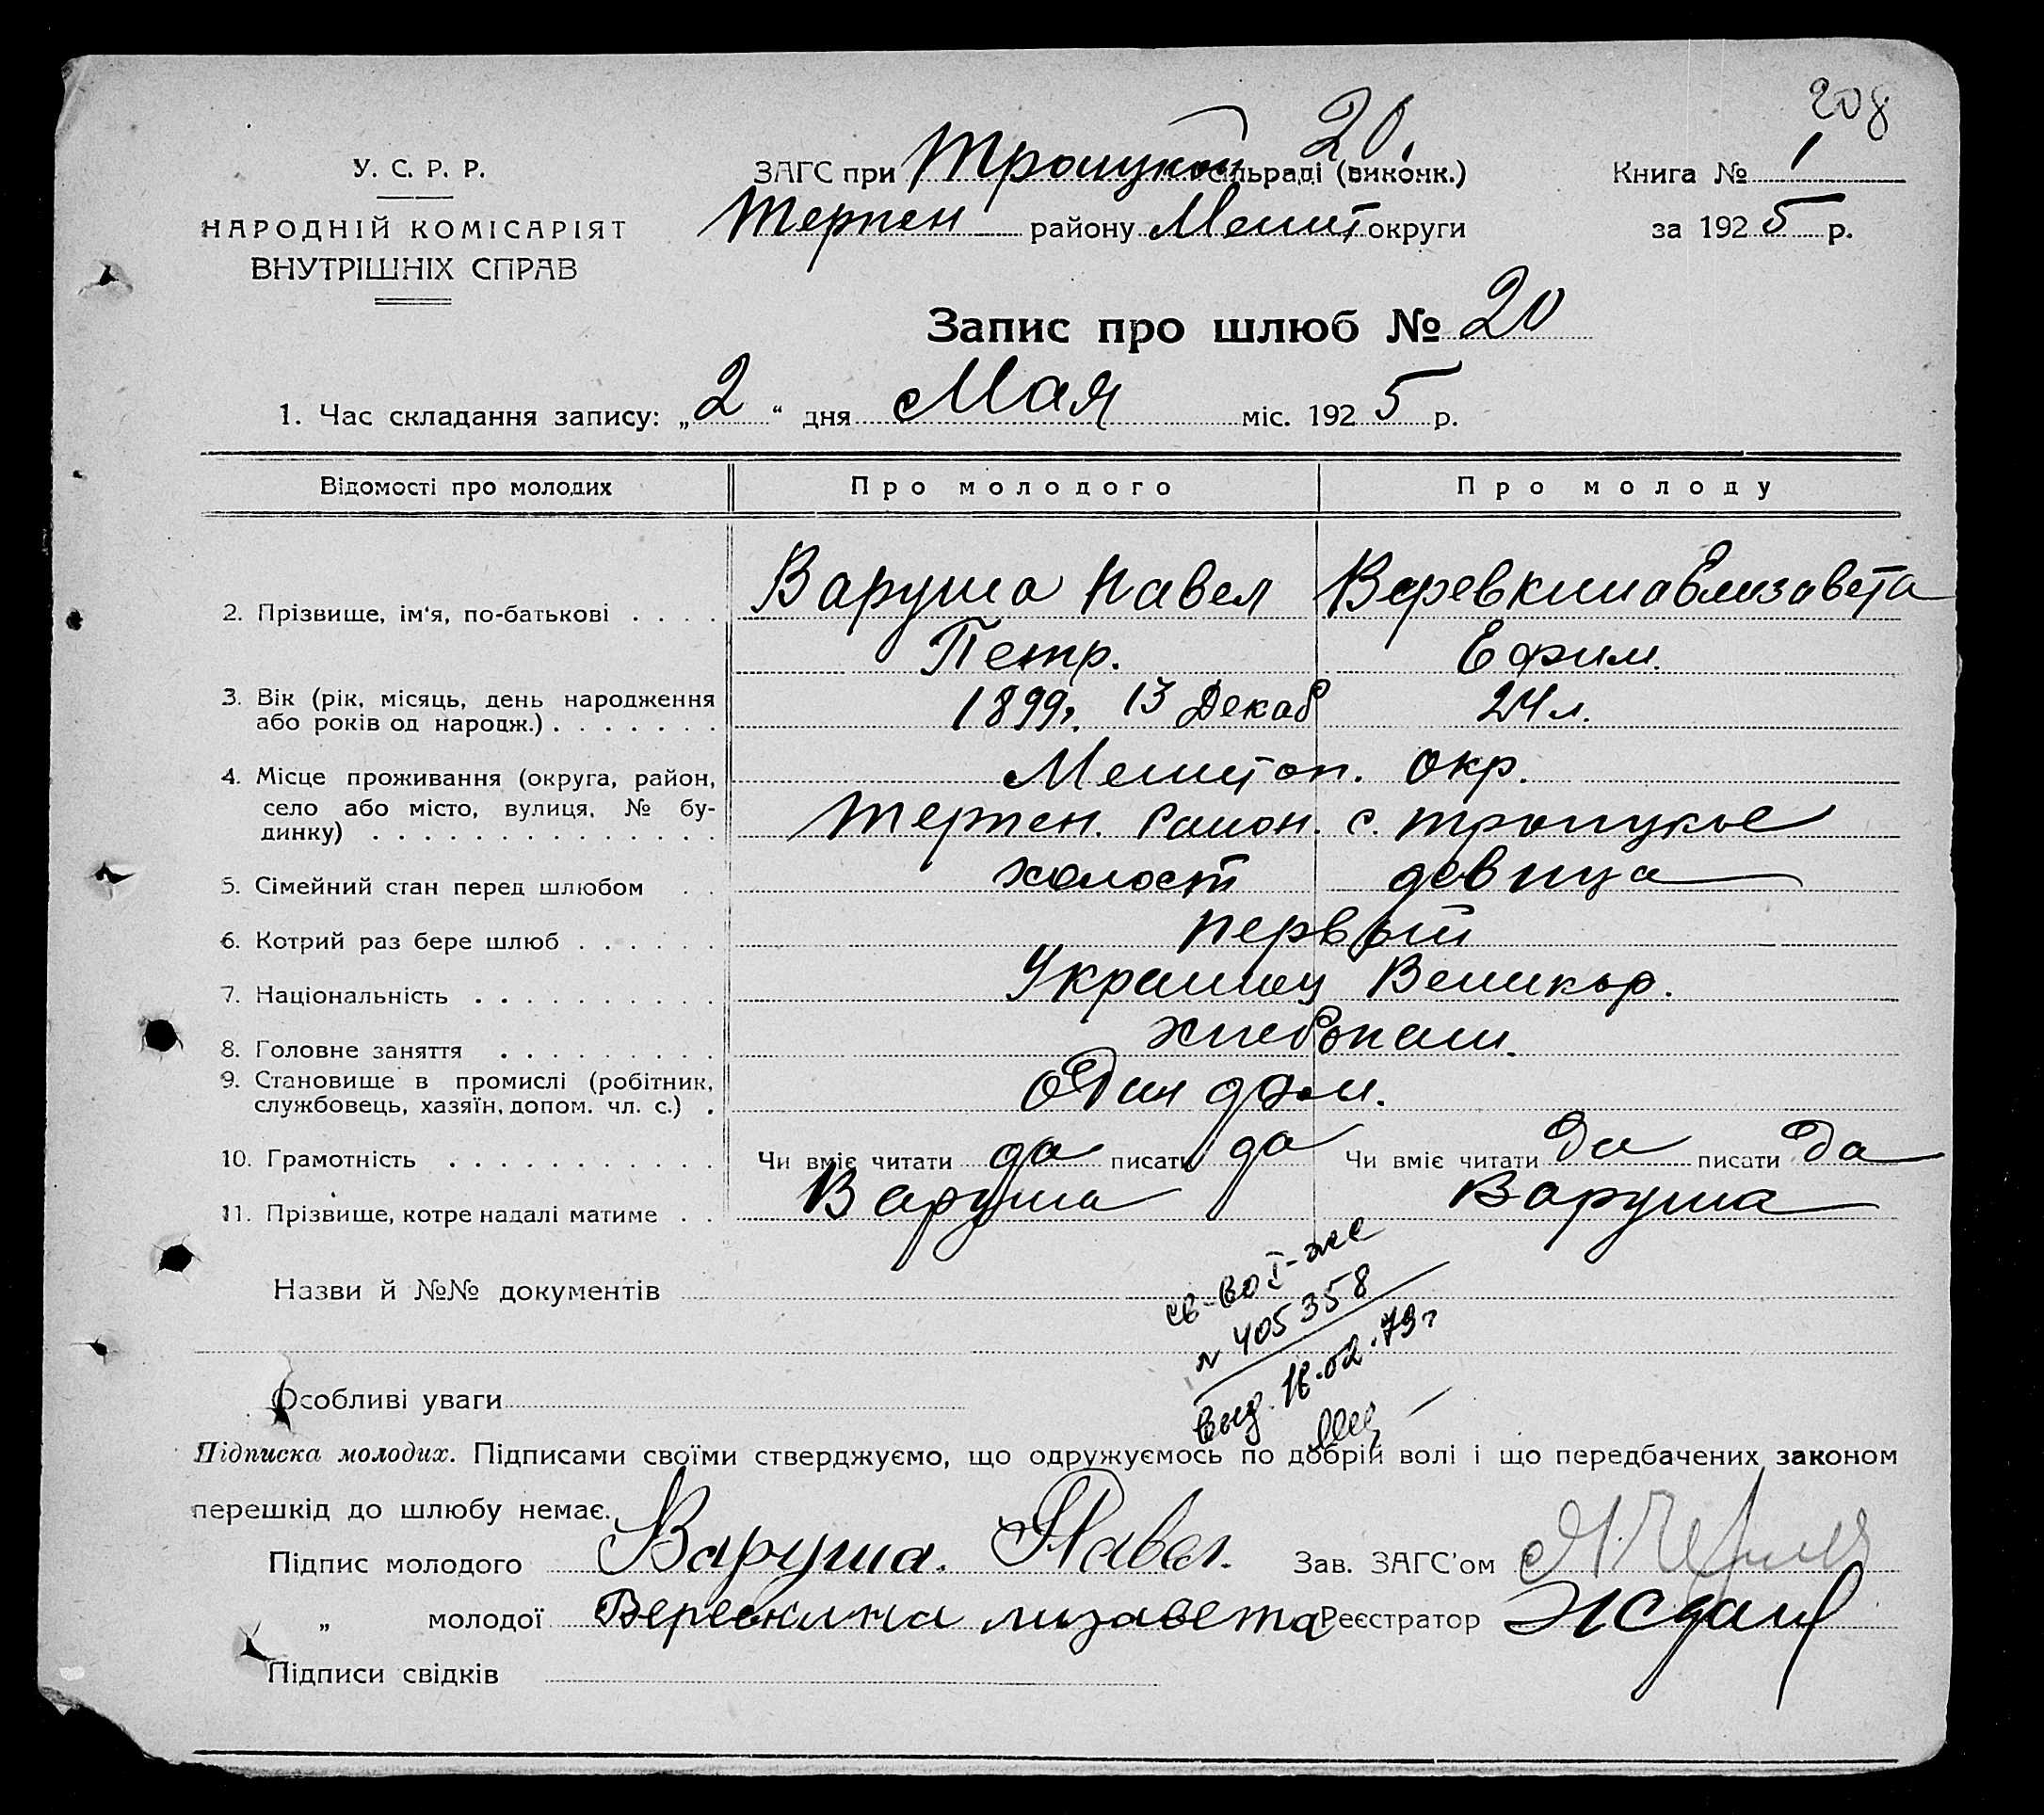 208
У. С. Р. Р.
НАРОДНІЙ КОМІСАРІЯТ
ВНУТРІШНІХ СПРАВ
20
ЗАГС при Троицкой сільраді (виконк.)
Терпен району Мелит округи
Книга № 1
за 1925 р.
Запис про шлюб № 20
1. Час складання запису: „2“ дня Мая міс. 1925 р.
Відомості про молодих Про молодого Про молоду
2. Прізвище, ім'я, по-батькові . . . . Варуша Павел Веревкина Елизавета
Петр. Ефим.
3. Вік (рік, місяць, день народження
або років од народж.) . . . . . . . 1899г. 13 Декаб 24 л.
4. Місце проживання (округа, район,
село або місто, вулиця, № бу-
динку) . . . . . . . . . . . . . .
Мелитоп. окр.
Терпен. район. с. Троицкое
5. Сімейний стан перед шлюбом . . холост девица
6. Котрий раз бере шлюб . . . . . первый
7. Національність . . . . . . . . . . Украинец Великор.
8. Головне заняття . . . . . . . . . хлебопаш.
9. Становище в промислі (робітник,
службовець, хазяїн, допом. чл. с.) . один дом.
10. Грамотність . . . . . . . . . . . Чи вміє читати да писати да Чи вміє читати да писати да
11. Прізвище, котре надалі матиме . . Варуша Варуша
Назви й №№ документів
св-во I-же
№ 405358
выд. 18.02.79г
Особливі уваги
Підписка молодих. Підписами своїми стверджуємо, що одружуємось по добрій волі і що передбачених законом
перешкід до шлюбу немає.
Підпис молодого Варуша. Павел. Зав. ЗАГС'ом
„ молодої Веревкина лизавета Реєстратор
Підписи свідків